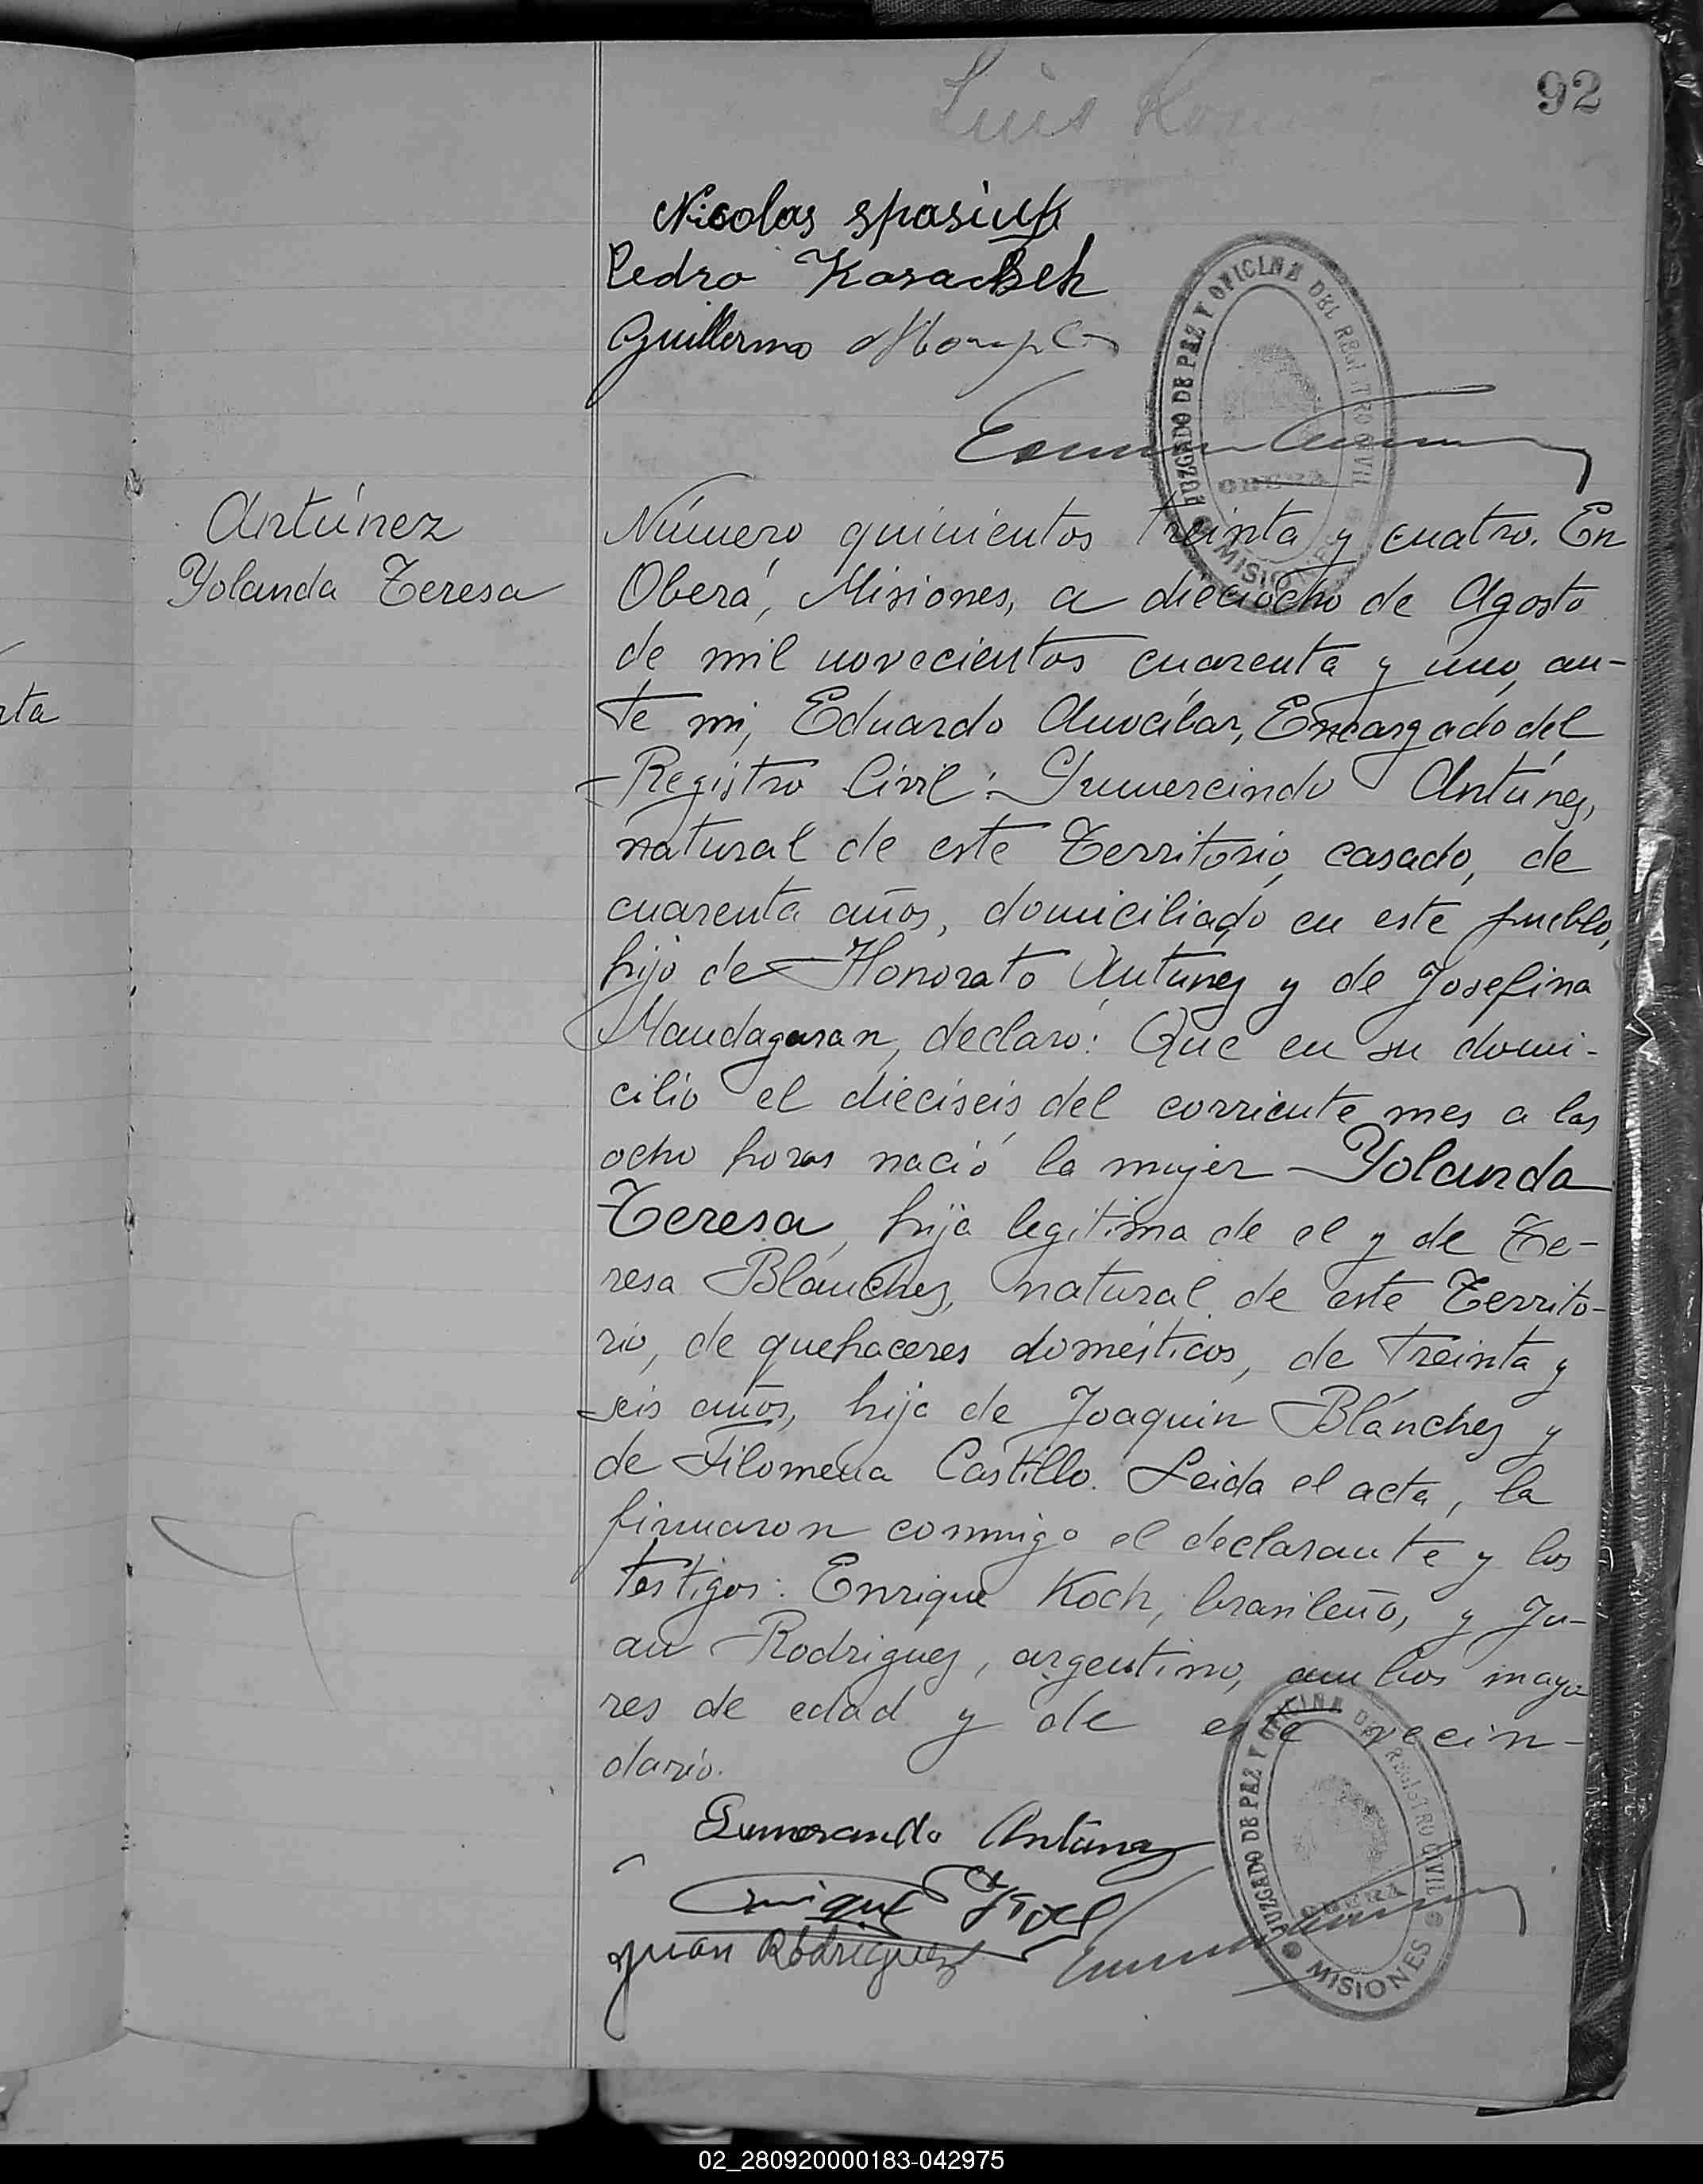 92
Luis
Nicolas Spasiuk
Pedro
Guillermo
JUZGADO DE PAZ Y OFICINA DEL REGISTRO CIVIL
OBERA
MISIONES
Antúnez
Yolanda Teresa
Número quinientos treinta y cuatro. En
Oberá, Misiones, a dieciocho de Agosto
de mil novecientos cuarenta y uno, an-
te mi, Eduardo Ancibar, Encargado del
Registro Civil: Gumercindo Antúnez,
natural de este Territorio, casado, de
cuarenta años, domiciliado en este pueblo,
hijo de Honorato Antúnez y de Josefina
Mandagaran, declaró: Que en su domi-
cilio el dieciseis del corriente mes a las
ocho horas nació la mujer Yolanda
Teresa, hija legítima de el y de Te-
resa Blánchez, natural de este Territo-
rio, de quehaceres domésticos, de treinta y
seis años, hija de Joaquin Blánchez y
de Filomena Castillo. Leida el acta, la
firmaron conmigo el declarante y los
testigos: Enrique Koch, brasileño, y Ju-
an Rodriguez, argentino, ambos mayo
res de edad y de este vecin-
dario.
rta
Gumersindo Antunez
Enrique Koch
Juan Rodriguez
JUZGADO DE PAZ Y OFICINA DEL REGISTRO CIVIL
OBERA
MISIONES
02_280920000183-042975